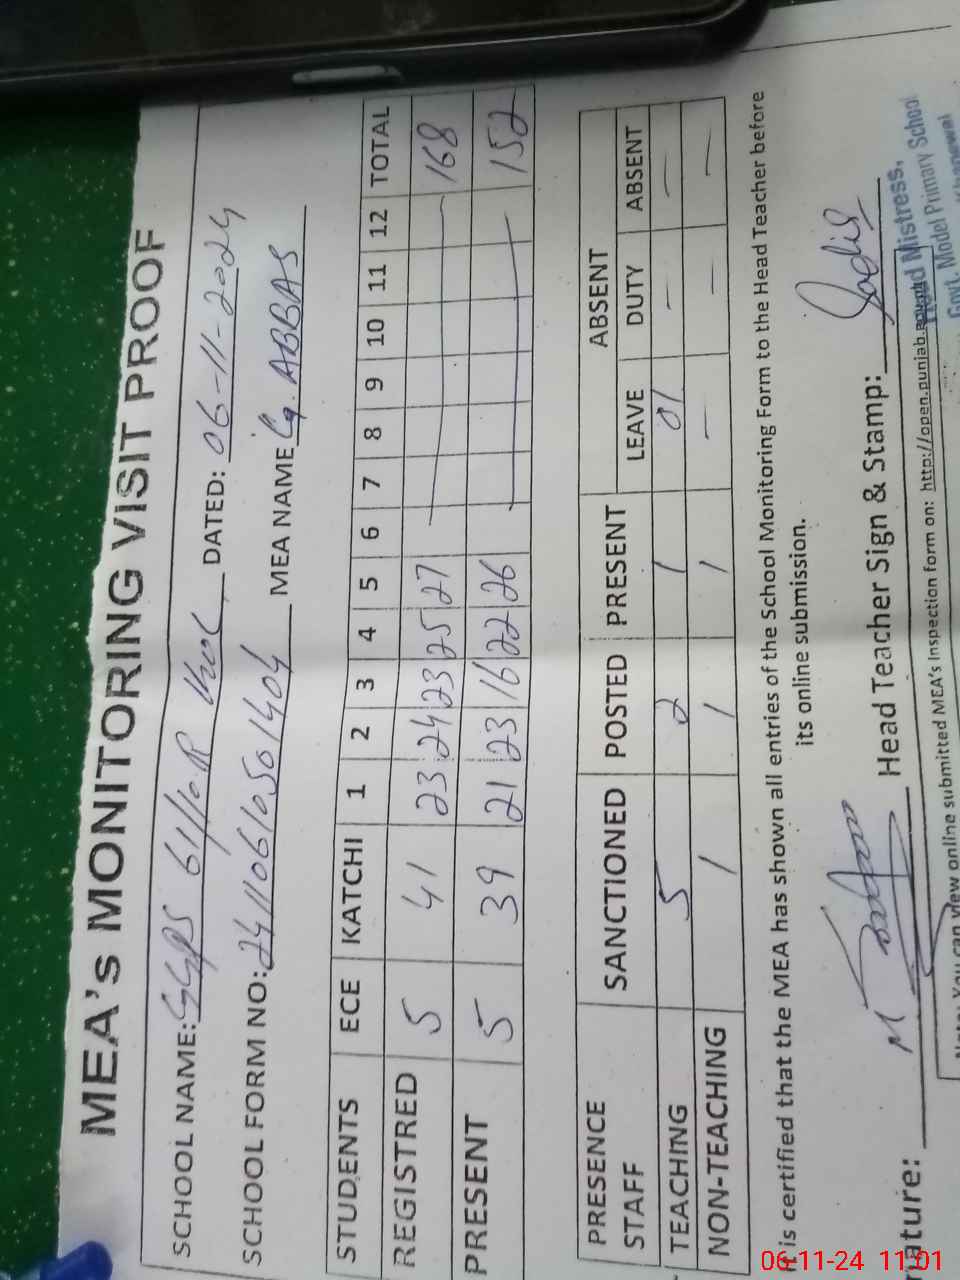 MEA's MONITORING VISIT PROOF
SCHOOL NAME: GGPS 61/10R DATED: 06-11-2024
SCHOOL FORM NO: 24110610501404 MEA NAME ABBAS
STUDENTS ECE KATCHI 1 2 3 4 5 6 7 8 9 10 11 12 TOTAL
REGISTRED 5 41 23 24 23 25 27 168
PRESENT 5 39 21 23 16 22 26 152
PRESENCE STAFF SANCTIONED POSTED PRESENT ABSENT
LEAVE DUTY ABSENT
TEACHING 5 2 1 01 — —
NON-TEACHING 1 1 1 — — —
It is certified that the MEA has shown all entries of the School Monitoring Form to the Head Teacher before
its online submission.
nature: Head Teacher Sign & Stamp:
Head Mistress,
Govt. Model Primary School
Note: You can view online submitted MEA's Inspection form on: http://open.punjab.
06-11-24 11:01